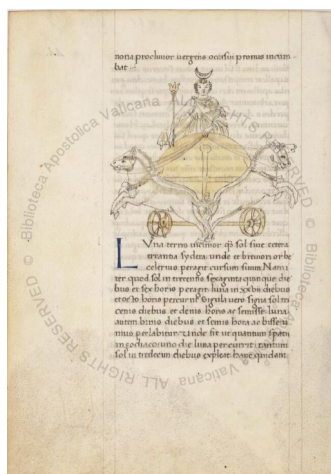 nona proclinior vergens occasui promus incum
bat
Luna terris vicinior qͥ sol sive cetera
errantia sydera. unde et breviori orbe
celerius peragit cursum suum. Nam
iter quod sol in trecentis sexaginta quinque die
bus et sex horis peragit. luna in xxvii diebus
et octo horis percurrit. Singula vero signa sol tri
cenis diebus et denis horis ac semisse. luna
autem binis diebus et senis horis ac bisse
minus perlabitur. Unde fit ut quantum spatii
in zodiaco uno die luna percurrit tantum
sol in tredecim diebus expleat. hanc quidam
© Biblioteca Apostolica Vaticana
ALL RIGHTS RESERVED
© Biblioteca Apostolica Vaticana
ALL RIGHTS RESERVED ©